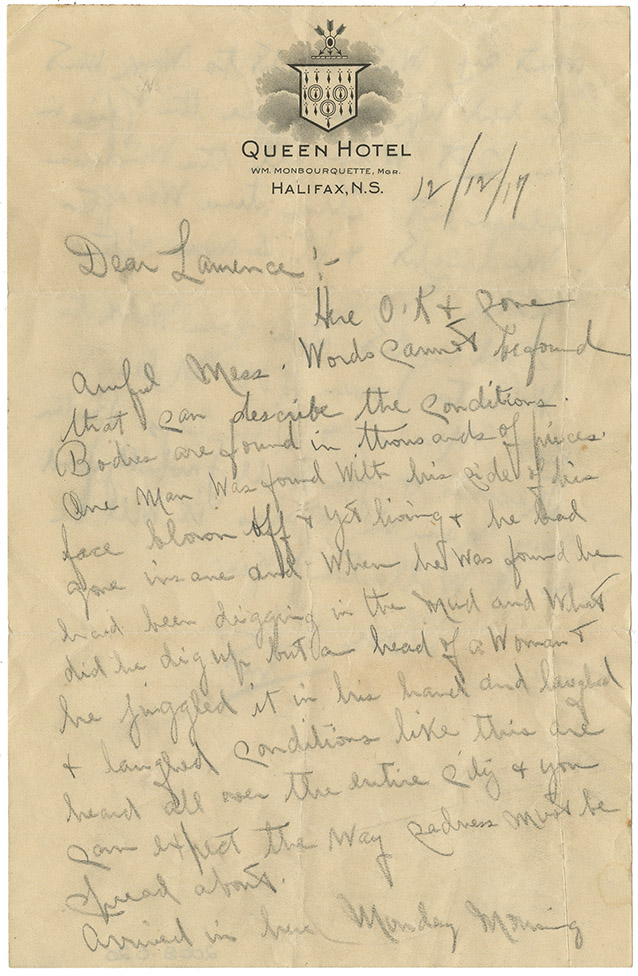 QUEEN HOTEL
WM. MONBOURQUETTE, MGR.
HALIFAX, N.S.
12/12/17
Dear Lawrence!-
Here O.K & some
awful Mess. Words cannot be found
that can describe the conditions.
Bodies are found in thousands of pieces.
One Man Was found With his side of his
face blown off & yet living & he had
gone insane and When he Was found he
had been digging in the Mud and What
did he dig up but a head of a Woman &
he juggled it in his hand and laughed
& laughed conditions like this are
heard all over the entire city & you
can expect the Way sadness must be
spread about.
Arrived in here Monday Morning